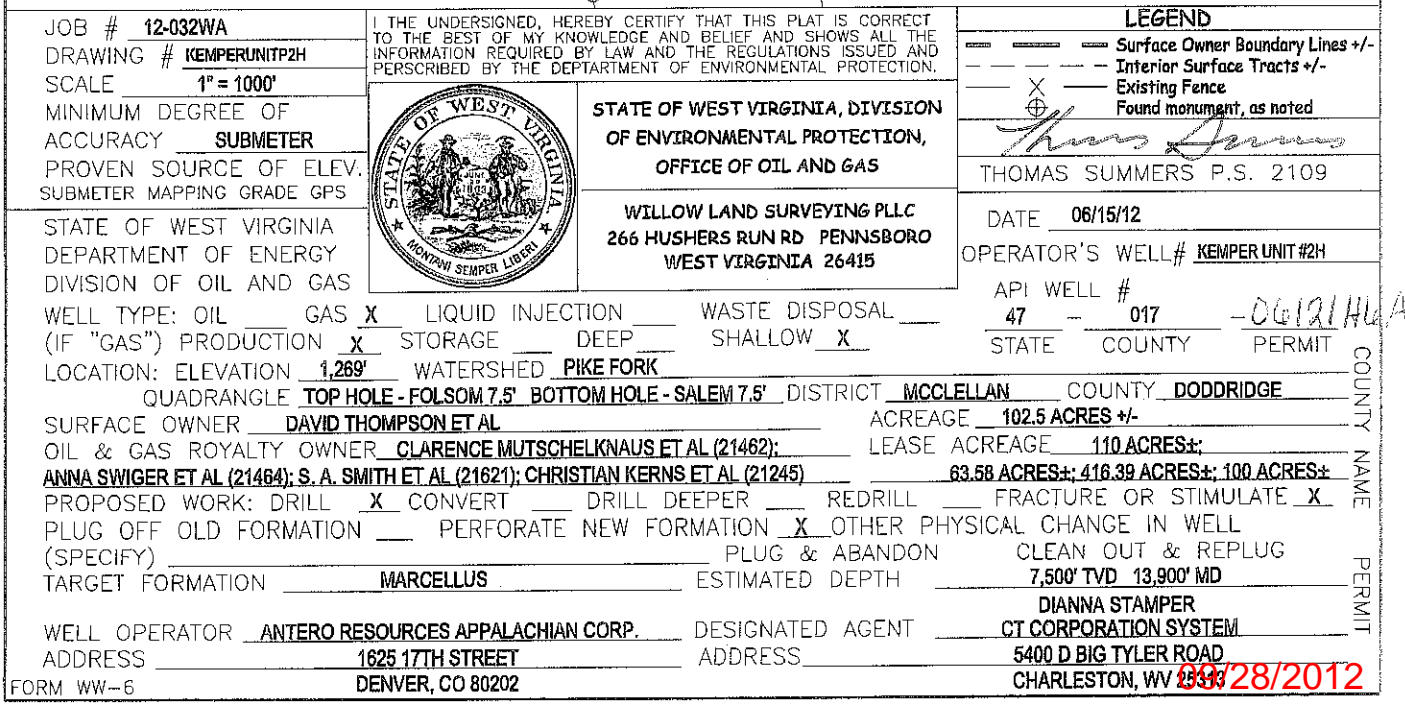 JOB # 12-032WA
DRAWING # KEMPERUNITP2H
SCALE 1" = 1000'
MINIMUM DEGREE OF
ACCURACY SUBMETER
PROVEN SOURCE OF ELEV.
SUBMETER MAPPING GRADE GPS
STATE OF WEST VIRGINIA
DEPARTMENT OF ENERGY
DIVISION OF OIL AND GAS
I THE UNDERSIGNED, HEREBY CERTIFY THAT THIS PLAT IS CORRECT
TO THE BEST OF MY KNOWLEDGE AND BELIEF AND SHOWS ALL THE
INFORMATION REQUIRED BY LAW AND THE REGULATIONS ISSUED AND
PERSCRIBED BY THE DEPTARTMENT OF ENVIRONMENTAL PROTECTION.
STATE OF WEST VIRGINIA
MONTANI SEMPER LIBERI
STATE OF WEST VIRGINIA, DIVISION
OF ENVIRONMENTAL PROTECTION,
OFFICE OF OIL AND GAS
WILLOW LAND SURVEYING PLLC
266 HUSHERS RUN RD PENNSBORO
WEST VIRGINIA 26415
LEGEND
Surface Owner Boundary Lines +/-
Interior Surface Tracts +/-
Existing Fence
Found monument, as noted
THOMAS SUMMERS P.S. 2109
DATE 06/15/12
OPERATOR'S WELL# KEMPER UNIT #2H
API WELL #
47 - 017 - 06121H6A
STATE COUNTY PERMIT
WELL TYPE: OIL ___ GAS X LIQUID INJECTION ___ WASTE DISPOSAL ___
(IF "GAS") PRODUCTION X STORAGE ___ DEEP ___ SHALLOW X
LOCATION: ELEVATION 1,269' WATERSHED PIKE FORK
QUADRANGLE TOP HOLE - FOLSOM 7.5' BOTTOM HOLE - SALEM 7.5' DISTRICT MCCLELLAN COUNTY DODDRIDGE
SURFACE OWNER DAVID THOMPSON ET AL ACREAGE 102.5 ACRES +/-
OIL & GAS ROYALTY OWNER CLARENCE MUTSCHELKNAUS ET AL (21462); LEASE ACREAGE 110 ACRES±;
ANNA SWIGER ET AL (21464); S. A. SMITH ET AL (21621); CHRISTIAN KERNS ET AL (21245) 63.58 ACRES±; 416.39 ACRES±; 100 ACRES±
PROPOSED WORK: DRILL X CONVERT ___ DRILL DEEPER ___ REDRILL ___ FRACTURE OR STIMULATE X
PLUG OFF OLD FORMATION ___ PERFORATE NEW FORMATION X OTHER PHYSICAL CHANGE IN WELL
(SPECIFY) ___ PLUG & ABANDON CLEAN OUT & REPLUG
TARGET FORMATION MARCELLUS ESTIMATED DEPTH 7,500' TVD 13,900' MD
DIANNA STAMPER
WELL OPERATOR ANTERO RESOURCES APPALACHIAN CORP. DESIGNATED AGENT CT CORPORATION SYSTEM
ADDRESS 1625 17TH STREET ADDRESS 5400 D BIG TYLER ROAD
FORM WW-6 DENVER, CO 80202 CHARLESTON, WV 25313
09/28/2012
COUNTY NAME
PERMIT